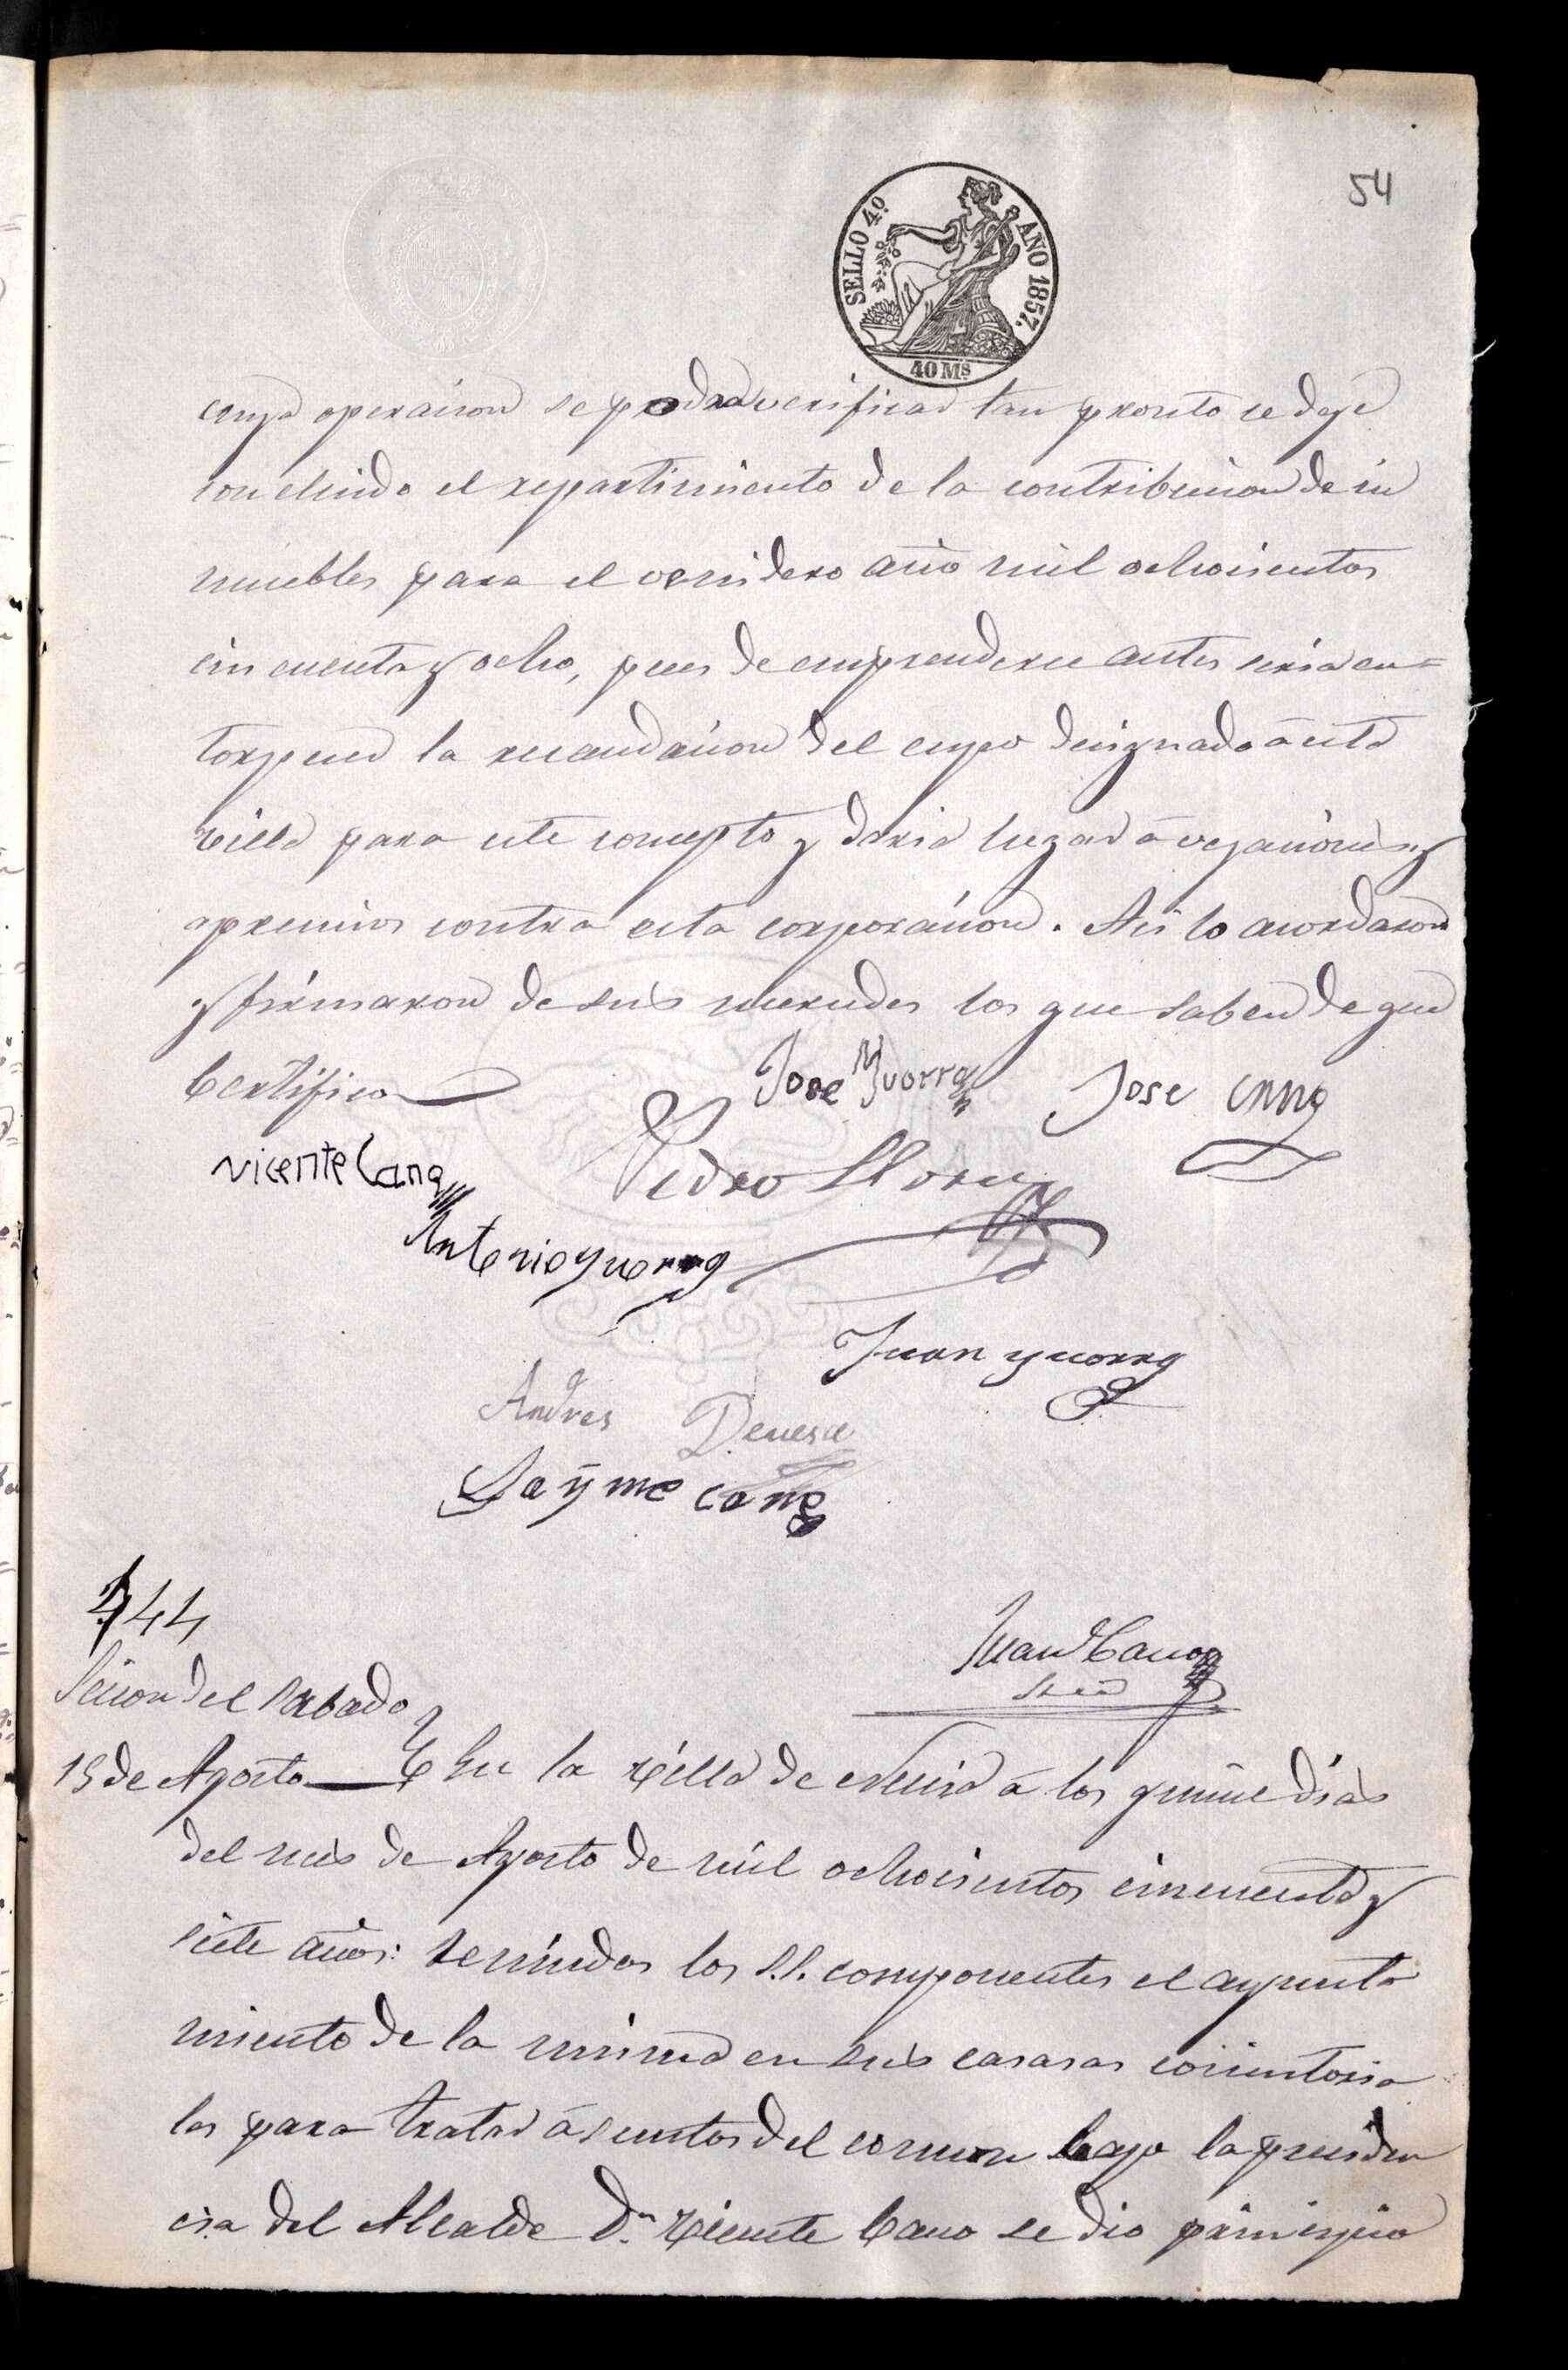 54
SELLO 4º AÑO 1857.
40 Ms
cuya operacion se podra verificar tan pronto se deje
concluido el repartimiento de la contribucion de in
muebles para el venidero año mil ochocientos
cincuenta y ocho, pues de emprenderse antes seria en=
torpecer la recaudacion del cupo designado á esta
villa para este concepto y daria lugar á vejaciones y
apremios contra esta corporacion. Asi lo acordaron
y firmaron de sus mercedes los que saben de que
Certifico
Jose Yvorra Jose Cano
Vicente Cano Pedro Llorens
Antonio Yvorra
Juan Yvorra
Andres Devesa
Jayme Cano
Juan Cano
Srio
44
Sesion del Sabado
15 de Agosto En la villa de Nucia á los quince dias
del mes de Agosto de mil ochocientos cincuenta y
siete años: reunidos los S.S. componentes el ayunta
miento de la misma en sus casasas consistoria
les para tratar asuntos del comun bajo la presiden
cia del Alcalde Dn. Vicente Cano se dio principio